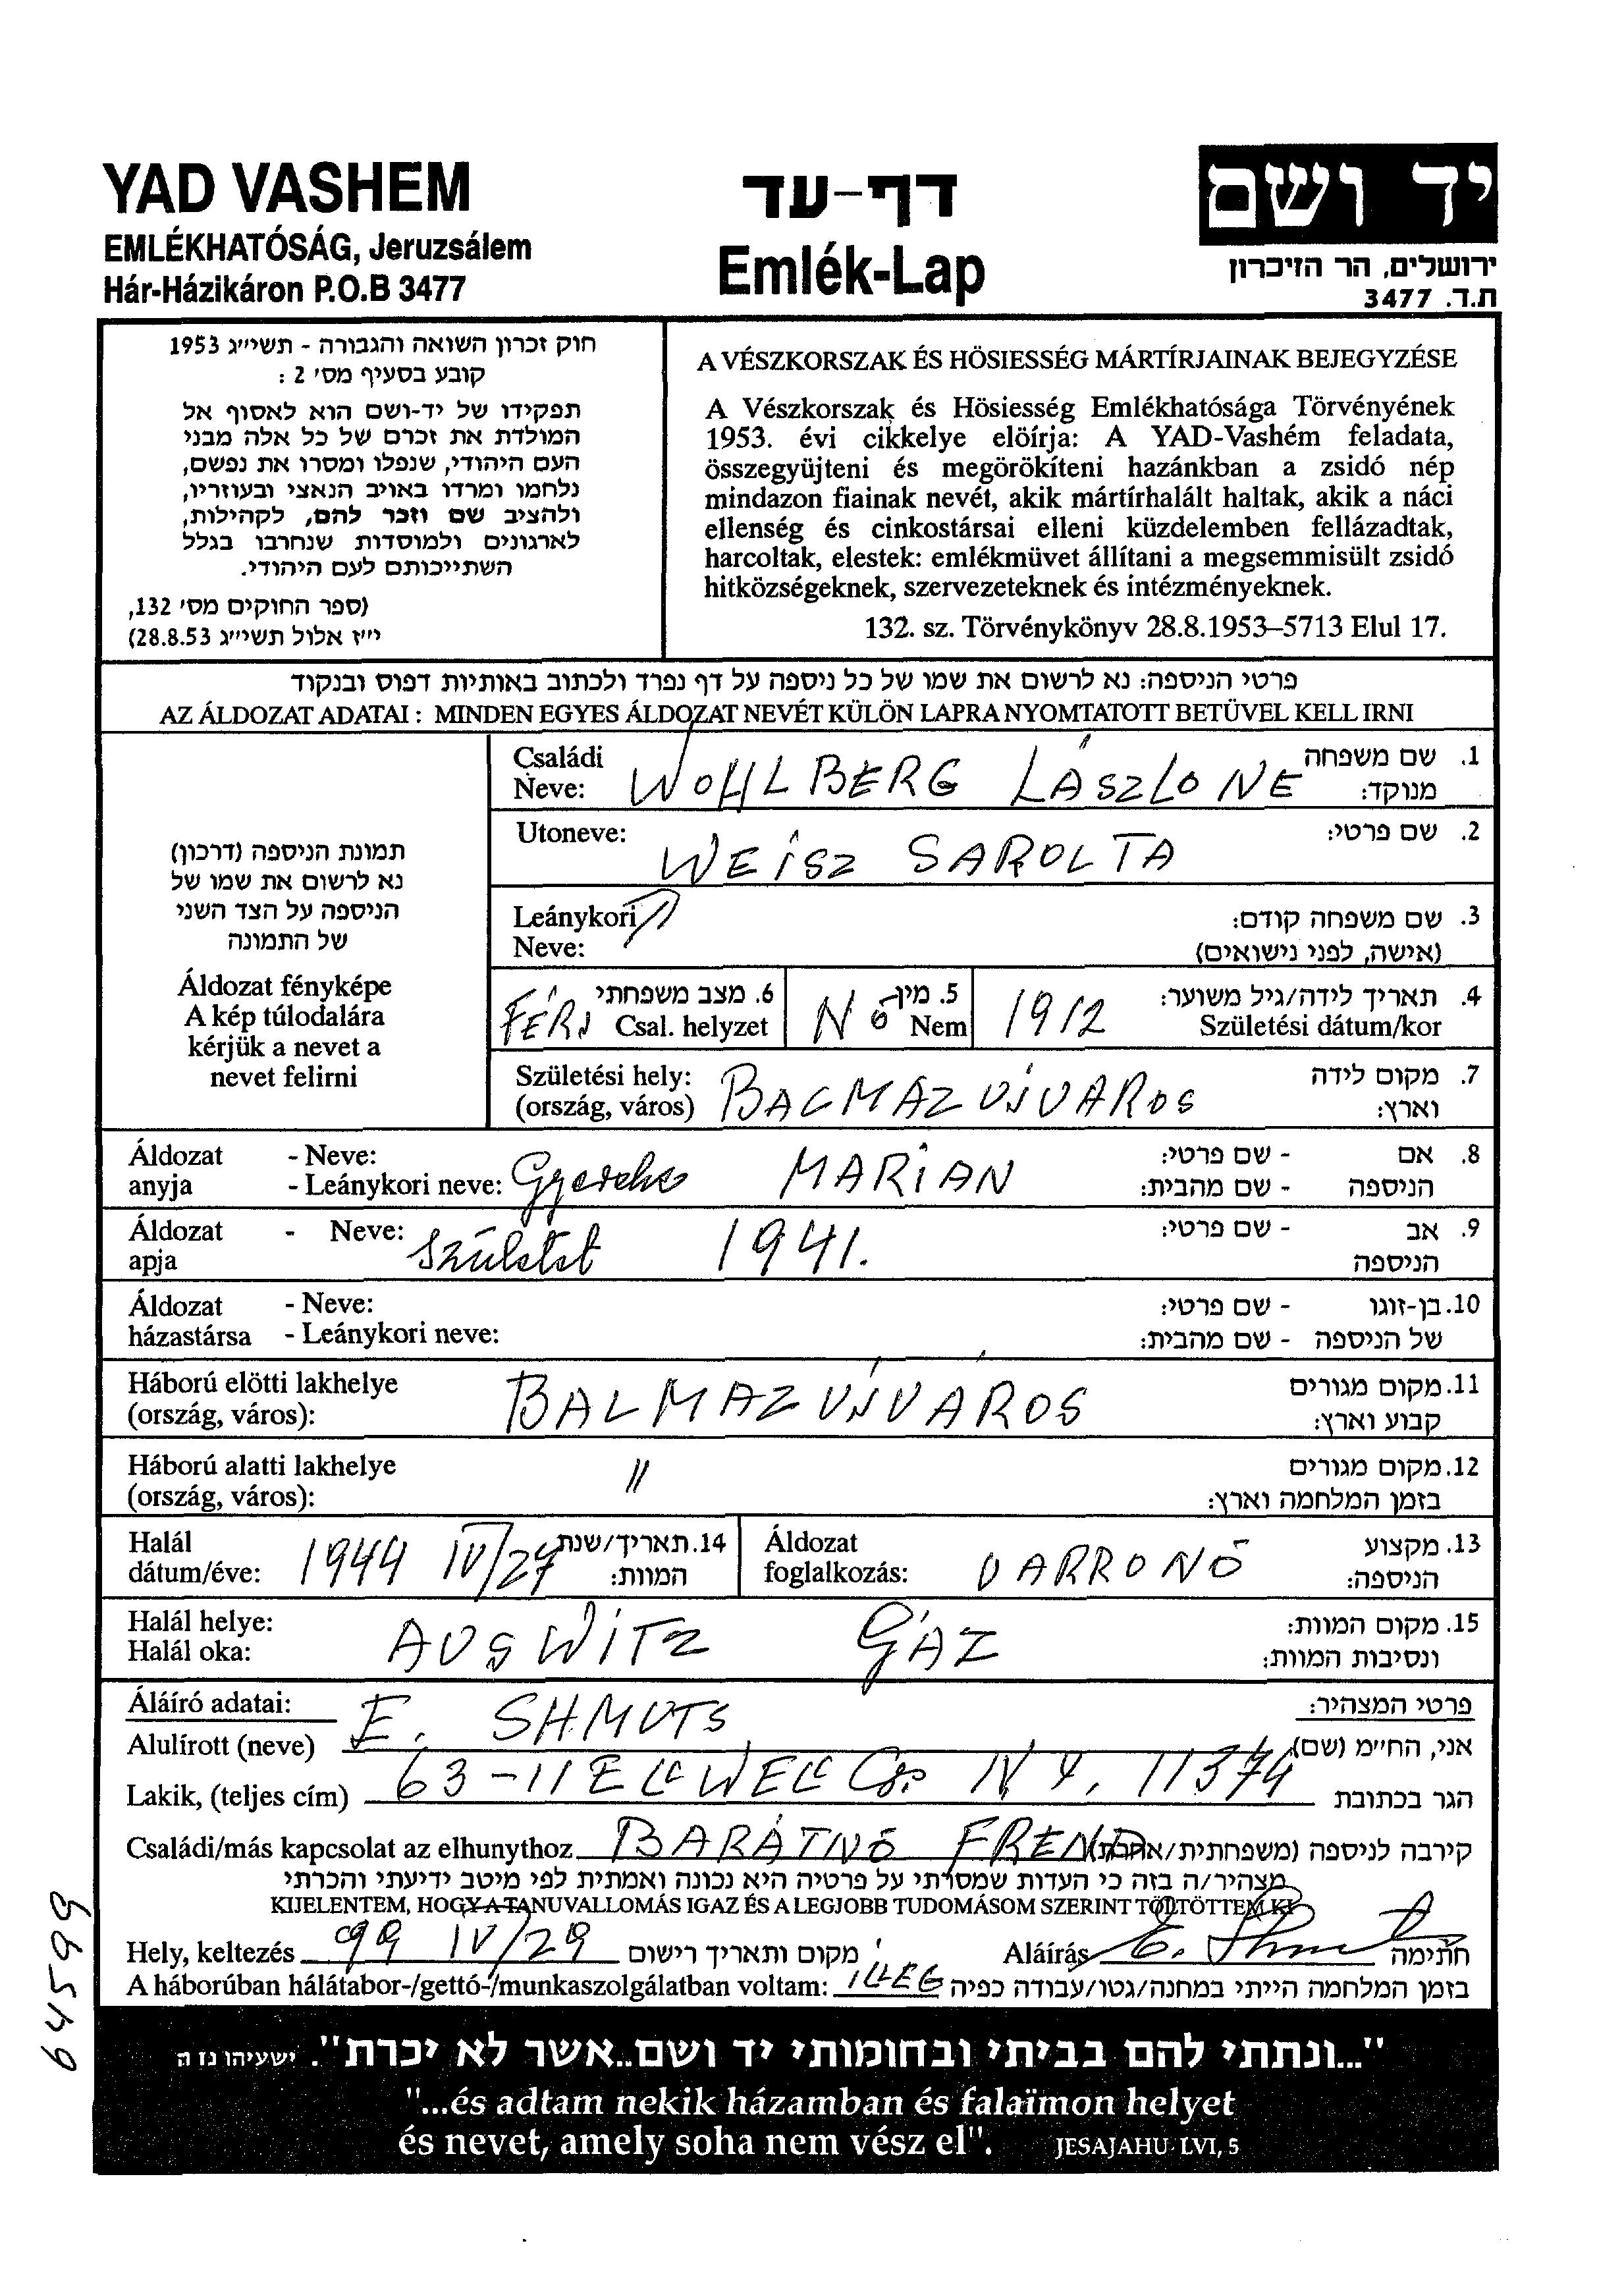 YAD VASHEM
EMLÉKHATÓSÁG, Jeruzsálem
Hár-Házikáron P.O.B 3477
דף-עד
Emlék-Lap
יד ושם
ירושלים, הר הזיכרון
ת.ד. 3477
חוק זכרון השואה והגבורה - תשי״ג 1953
קובע בסעיף מס׳ 2 :
תפקידו של יד-ושם הוא לאסוף אל
המולדת את זכרם של כל אלה מבני
העם היהודי, שנפלו ומסרו את נפשם,
נלחמו ומרדו באויב הנאצי ובעוזריו,
ולהציב שם וזכר להם, לקהילות,
לארגונים ולמוסדות שנחרבו בגלל
השתייכותם לעם היהודי.
(ספר החוקים מס׳ 132,
י״ז אלול תשי״ג 28.8.53)
A VÉSZKORSZAK ÉS HÖSIESSÉG MÁRTÍRJAINAK BEJEGYZÉSE
A Vészkorszak és Hösiesség Emlékhatósága Törvényének
1953. évi cikkelye elöírja: A YAD-Vashém feladata,
összegyüjteni és megörökíteni hazánkban a zsidó nép
mindazon fiainak nevét, akik mártírhalált haltak, akik a náci
ellenség és cinkostársai elleni küzdelemben fellázadtak,
harcoltak, elestek: emlékmüvet állítani a megsemmisült zsidó
hitközségeknek, szervezeteknek és intézményeknek.
132. sz. Törvénykönyv 28.8.1953–5713 Elul 17.
פרטי הניספה: נא לרשום את שמו של כל ניספה על דף נפרד ולכתוב באותיות דפוס ובנקוד
AZ ÁLDOZAT ADATAI : MINDEN EGYES ÁLDOZAT NEVÉT KÜLÖN LAPRA NYOMTATOTT BETÜVEL KELL IRNI
תמונת הניספה (דרכון)
נא לרשום את שמו של
הניספה על הצד השני
של התמונה
Áldozat fényképe
A kép túlodalára
kérjük a nevet a
nevet felirni
Családi Neve: WOHLBERG LÁSZLONE 1. שם משפחה מנוקד:
Utoneve: WEISZ SAROLTA 2. שם פרטי:
Leánykori Neve: 3. שם משפחה קודם: (אישה, לפני נישואים)
FÉRJ 6. מצב משפחתי Csal. helyzet NŐ 5. מין Nem 1912 4. תאריך לידה/גיל משוער: Születési dátum/kor
Születési hely: (ország, város) BALMAZÚJVAROS 7. מקום לידה וארץ:
Áldozat anyja - Neve: - Leánykori neve: Gyereke MARIAN 8. אם הניספה - שם פרטי: - שם מהבית:
Áldozat apja - Neve: Született 1941. 9. אב הניספה - שם פרטי:
Áldozat házastársa - Neve: - Leánykori neve: 10. בן-זוגו של הניספה - שם פרטי: - שם מהבית:
Háború elötti lakhelye (ország, város): BALMAZÚJVÁROS 11. מקום מגורים קבוע וארץ:
Háború alatti lakhelye (ország, város): " 12. מקום מגורים בזמן המלחמה וארץ:
Halál dátum/éve: 1944 IV/27 14. תאריך/שנת המוות: Áldozat foglalkozás: VARRONŐ 13. מקצוע הניספה:
Halál helye: Halál oka: AUSWITZ GÁZ 15. מקום המוות: ונסיבות המוות:
Áláíró adatai: פרטי המצהיר:
Alulírott (neve) E. SHMUTS אני, הח״מ (שם)
Lakik, (teljes cím) 63-11 ELLWELL NY. 11374 הגר בכתובת
Családi/más kapcsolat az elhunythoz BARÁTNŐ FREND קירבה לניספה (משפחתית/אחרת)
מצהיר/ה בזה כי העדות שמסרתי על פרטיה היא נכונה ואמתית לפי מיטב ידיעתי והכרתי
KIJELENTEM, HOGY A TANUVALLOMÁS IGAZ ÉS A LEGJOBB TUDOMÁSOM SZERINT TÖLTÖTTEM KI
Hely, keltezés 99 IV/29 מקום ותאריך רישום Aláírás חתימה
A háborúban hálátabor-/gettó-/munkaszolgálatban voltam: ILLEG בזמן המלחמה הייתי במחנה/גטו/עבודה כפיה
64599
"...ונתתי להם בביתי ובחומותי יד ושם..אשר לא יכרת". ישעיהו נז ה
"...és adtam nekik házamban és falaïmon helyet
és nevet, amely soha nem vész el". JESAJAHU LVI, 5